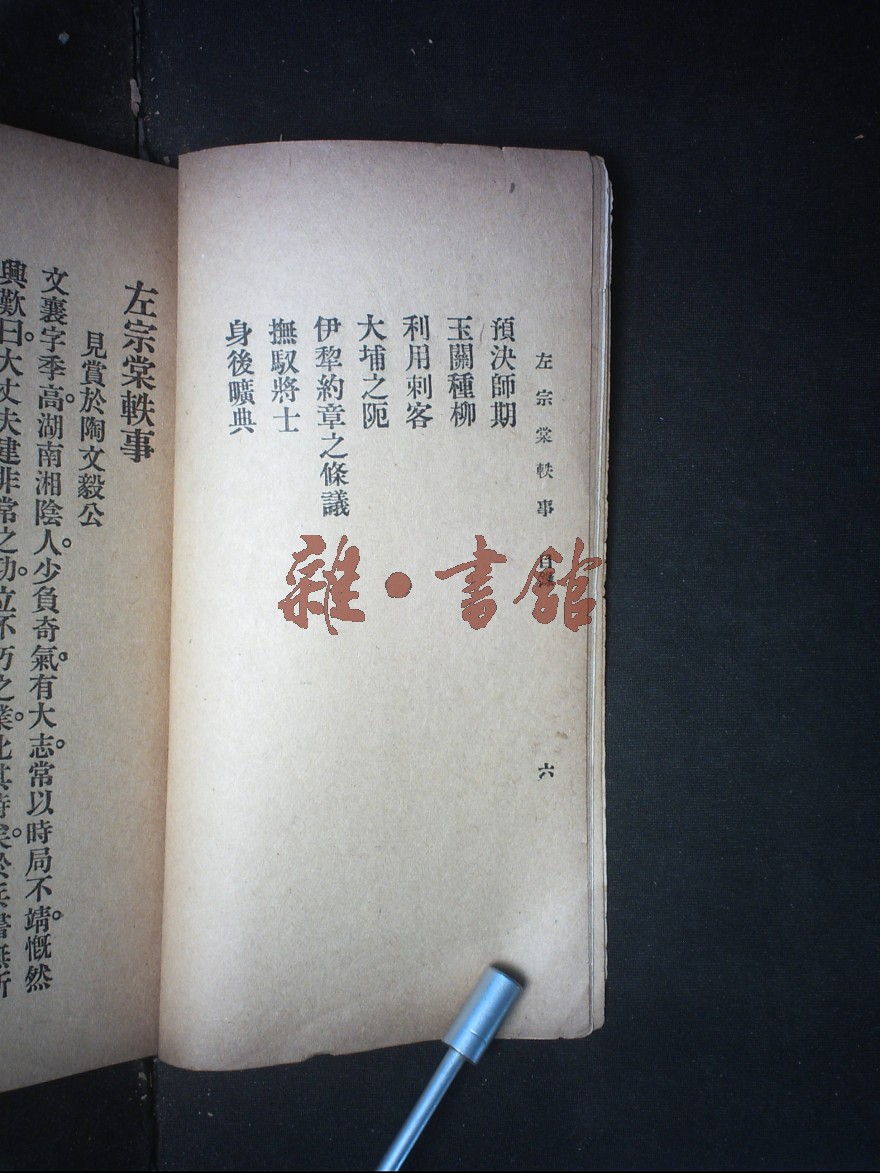 左宗棠軼事 目錄 六
預決師期
玉關種柳
利用刺客
大埔之阨
伊犂約章之條議
撫馭將士
身後曠典
雜·書館
左宗棠軼事
見賞於陶文毅公
文襄字季高。湖南湘陰人。少負奇氣。有大志。常以時局不靖。慨然
興歎曰。大丈夫建非常之功。立不朽之業。此其時矣。於兵書無所